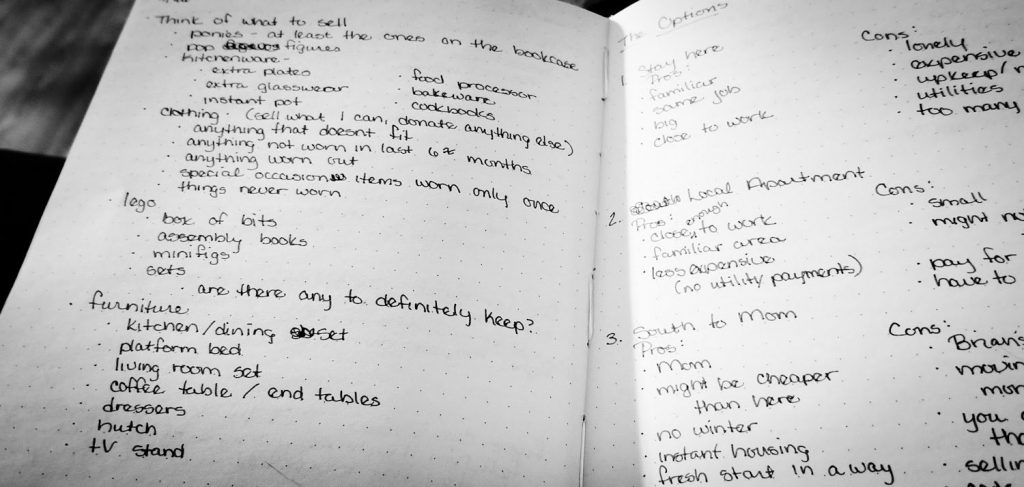 Think of what to sell
· ponies - at least the ones on the bookcase
· pop figures
· Kitchenware -
· extra plates
· extra glasswear
· instant pot
· food processor
· bakeware
· cookbooks
· clothing · (sell what I can, donate anything else)
· anything that doesnt fit
· anything not worn in last 6 months
· anything worn out
· special occasion items worn only once
· things never worn
· lego
· box of bits
· assembly books
· minifigs
· sets
· are there any to definitely keep?
· furniture
· kitchen/dining set
· platform bed
· living room set
· coffee table / end tables
· dressers
· hutch
· tv stand
The Options
1. Stay here
Pros:
· familiar
· same job
· big
· close to work
Cons:
· lonely
· expensive
· upkeep/
· utilities
· too many
2. Local Apartment
Pros:
· close enough to work
· familiar area
· less expensive
(no utility payments)
Cons:
· small
· might
· pay for
· have to
3. South to Mom
Pros:
· mom
· might be cheaper
than here
· no winter
· instant housing
· fresh start in a way
Cons:
· Brian's
·
· you